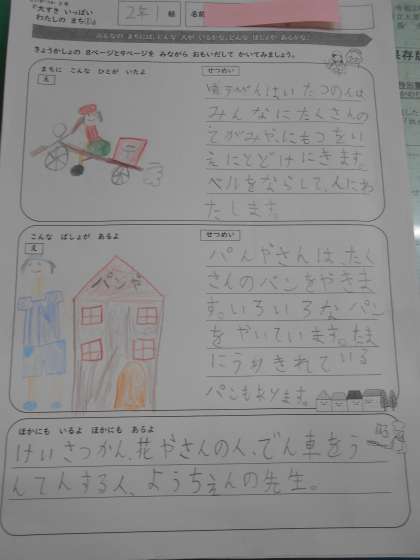 「大すき いっぱい
わたしの まち①」
2年1組
名前
みんなの まちには、どんな 人が いるかな。どんな ばしょが あるかな。
きょうかしょの 8ページと9ページを みながら おもいだして かいてみましょう。
まちに こんな ひとが いたよ
え
せつめい
みんなにたくさんの
てがみや、にもつをい
えにとどけにきます。
ベルをならして、
たします。
こんな ばしょが あるよ
え
パンや
せつめい
パんやさんは、たく
さんのパンをやきま
す。いろいろなパン
をやいています。たま
にうりきれている
パンもあります。
ほかにも いるよ ほかにも あるよ
けいさつかん、花やさんの人、でん車をう
んてんする人、ようちえんの先生。